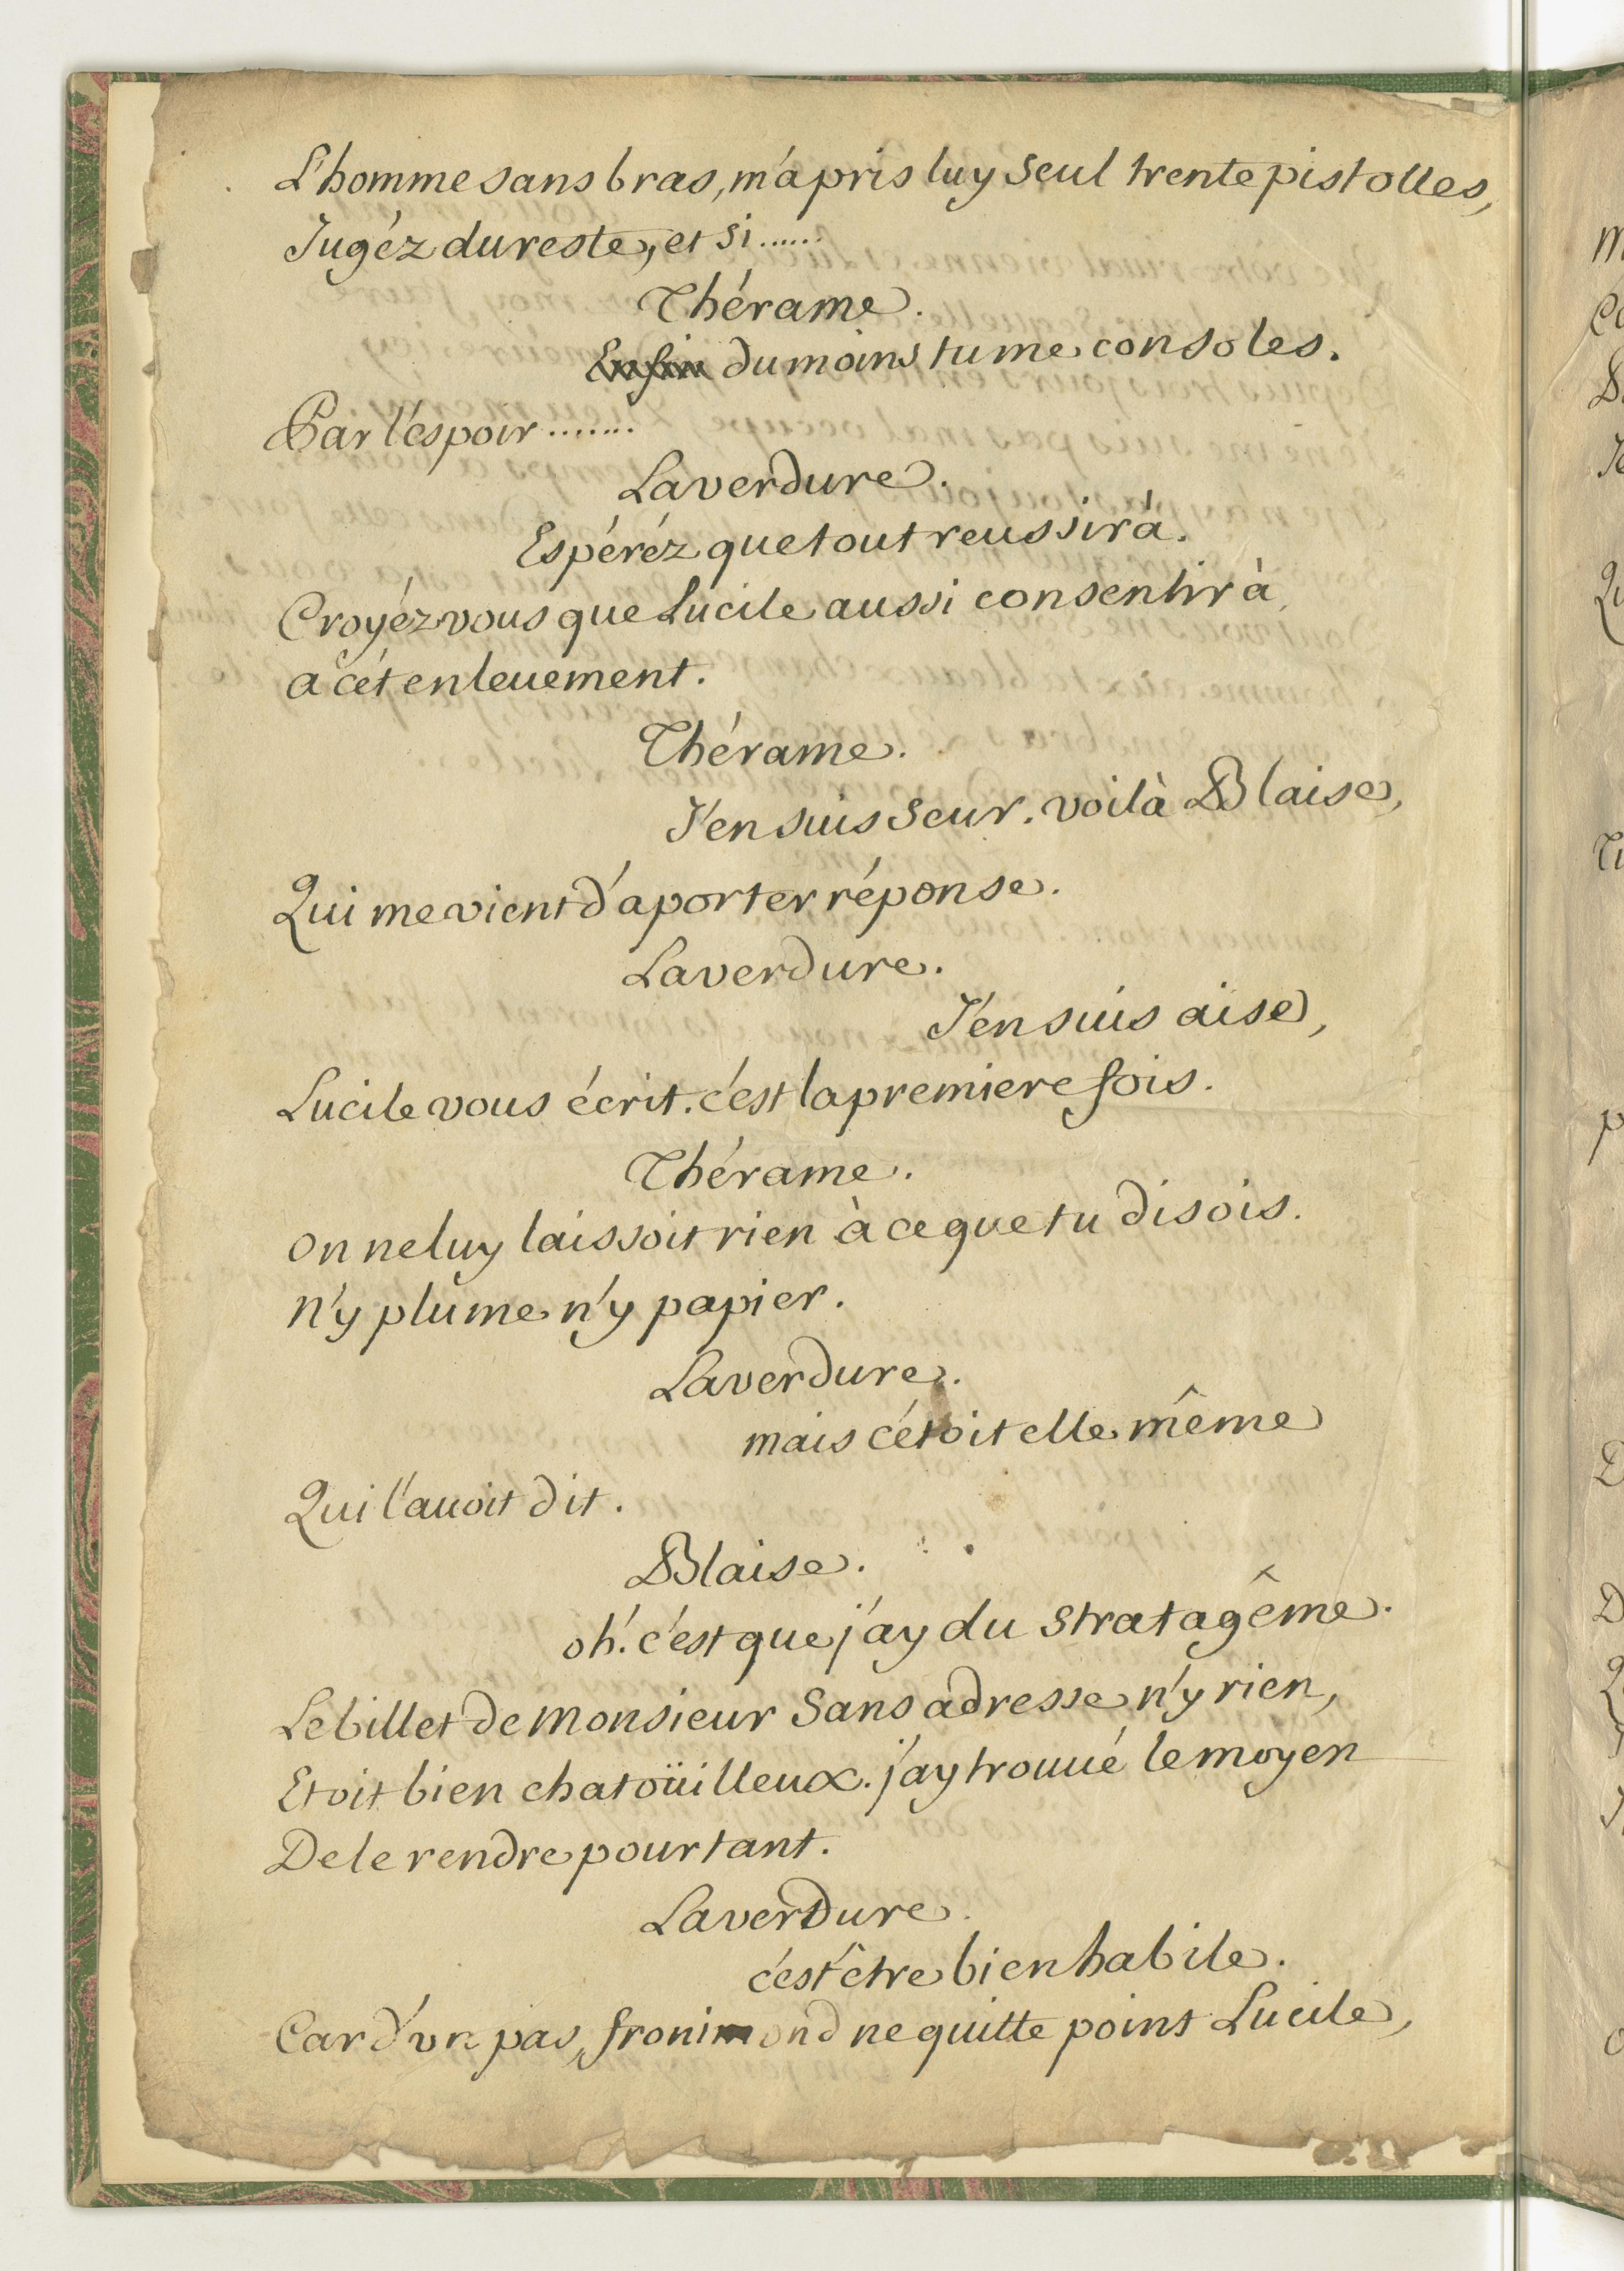 L'homme sans bras, m'a pris luy seul trente pistolles,
Jugéz du reste, et si......
Thérame.
Enfin du moins tu me consoles.
Par l'éspoir .......
Laverdure.
Espéréz que tout reussira.
Croyéz vous que Lucile aussi consentirà
a cét enleuement.
Thérame.
J'en suis seur. voilà Blaise,
Qui me vient d'aporter réponse.
Laverdure.
J'en suis aise,
Lucile vous écrit. c'est la premiere fois.
Thérame.
on ne luy laissoit rien à ce que tu disois.
n'y plume n'y papier.
Laverdure.
mais c'étoit elle même
Qui l'auoit dit.
Blaise.
oh! c'est que j'ay du stratagême.
Le billet de monsieur sans adresse n'y rien,
Etoit bien chatoüilleux. j'ay trouué le moyen
De le rendre pourtant.
Laverdure.
c'est être bien habile.
Car d'vn pas, fronimond ne quitte point Lucile,